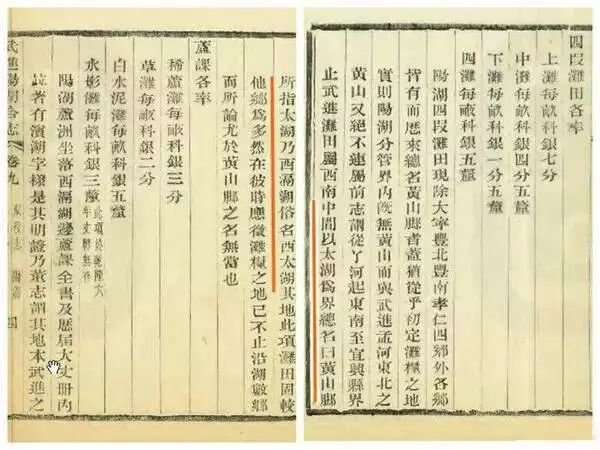 四段灘田各率
上灘每畝科銀七分
中灘每畝科銀四分五釐
下灘每畝科銀一分五釐
四灘每畝科銀五釐
陽湖四段灘田現除大寧豐北豐南孝仁四鄉外各鄉
皆有而歷來總名黃山鄉者葢猶從乎初定灘糧之地
實則陽湖分管界內既無黃山而與武進孟河東北之
黃山又絕不連屬前志謂從丫河起東南至宜興縣界
止武進灘田屬西南中間以太湖爲界總名曰黃山鄉
所指太湖乃西滆湖俗名西太湖其地此項灘田固較
他鄉爲多然在彼時應徵灘糧之地已不止沿湖數鄉
而所論尤於黃山之名無當也
蘆課各率
稀蘆灘每畝科銀三分
草灘每畝科銀二分
白水泥灘每畝科銀五釐
水影灘每畝科銀三釐
陽湖蘆洲坐落西滆湖邊蘆課全書及歷屆大丈冊內
竝著有濱湖字樣是其明證乃董志謂其地本武進之
武進陽湖合志 卷九